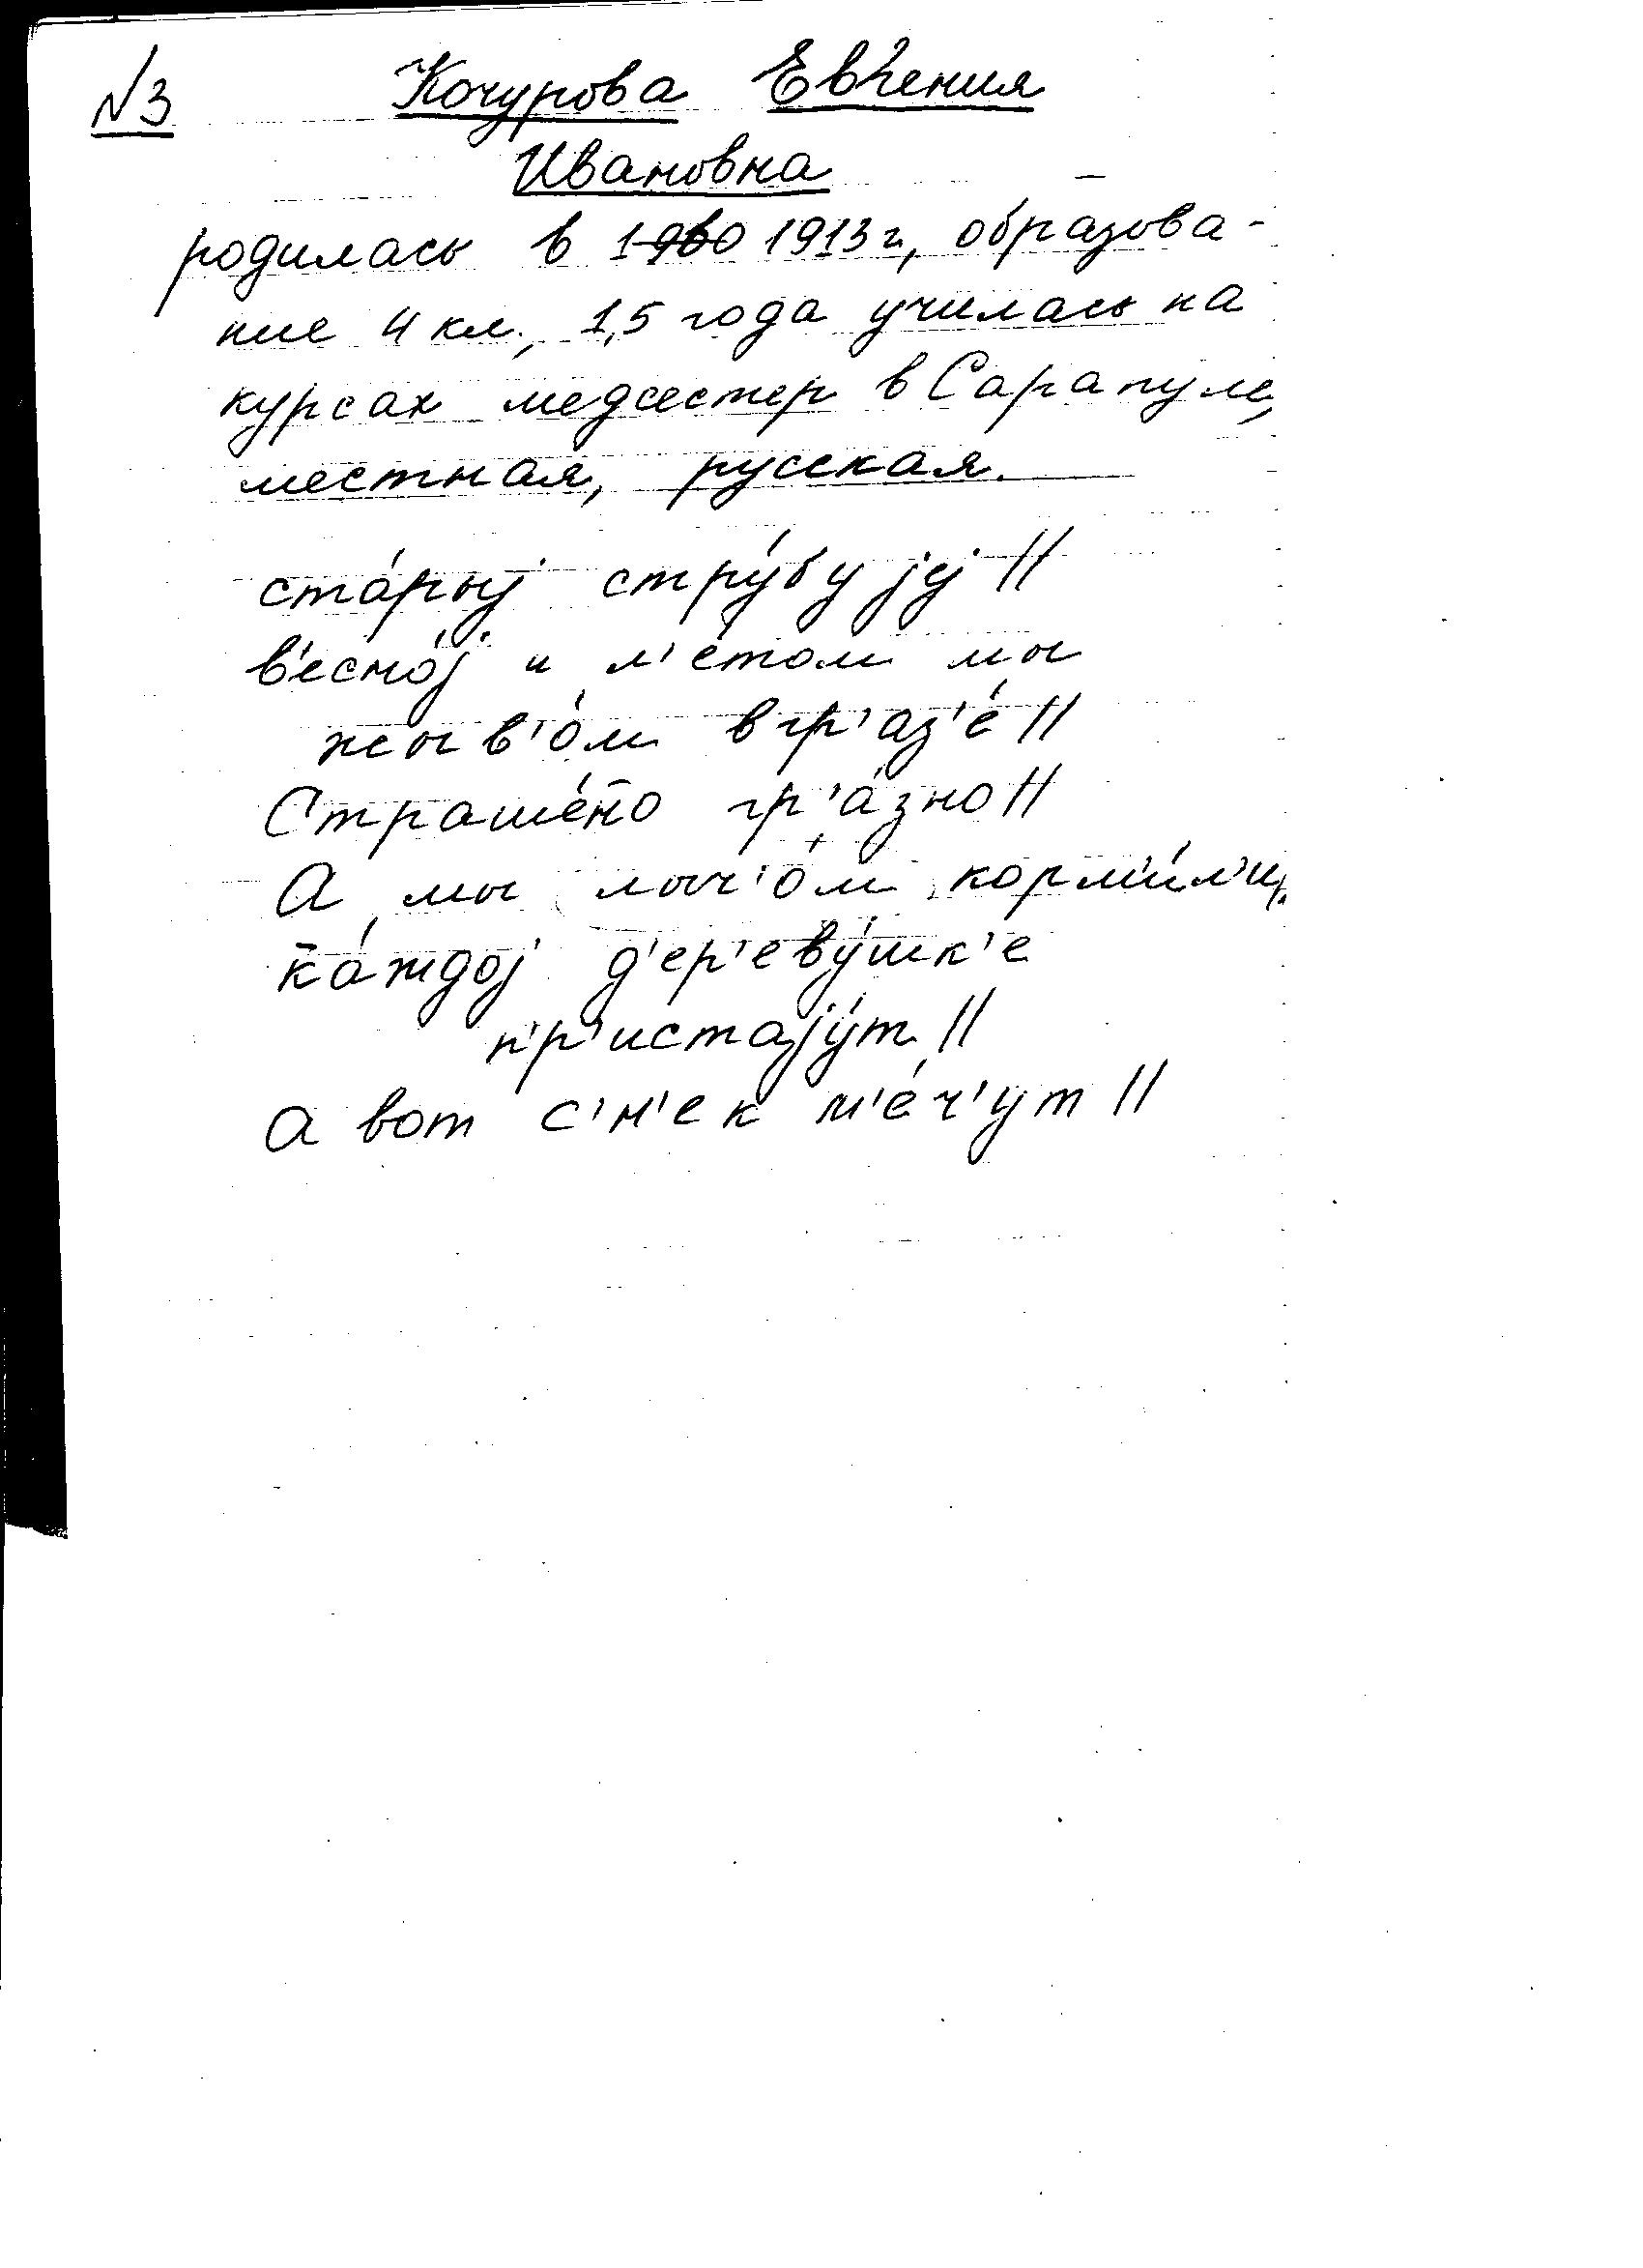 №3 Кочурова Евгения
Ивановна
родилась в 1960 1913 г., образова-
ние 4 кл., 1,5 года училась на
курсах медсестер в Сарапуле,
местная, русская.
ста́рыј стру́бу јеј //
в'есно́ј и л'е́том мы
жыв'о́м в гр'аз'е́ //
Страше́но гр'а́зно //
А мы лыч'о́м корм'и́л'и,
ка́ждој д'ер'еву́шк'е
пр'истају́т //
А вот с'н'ек м'е́ч'ут //